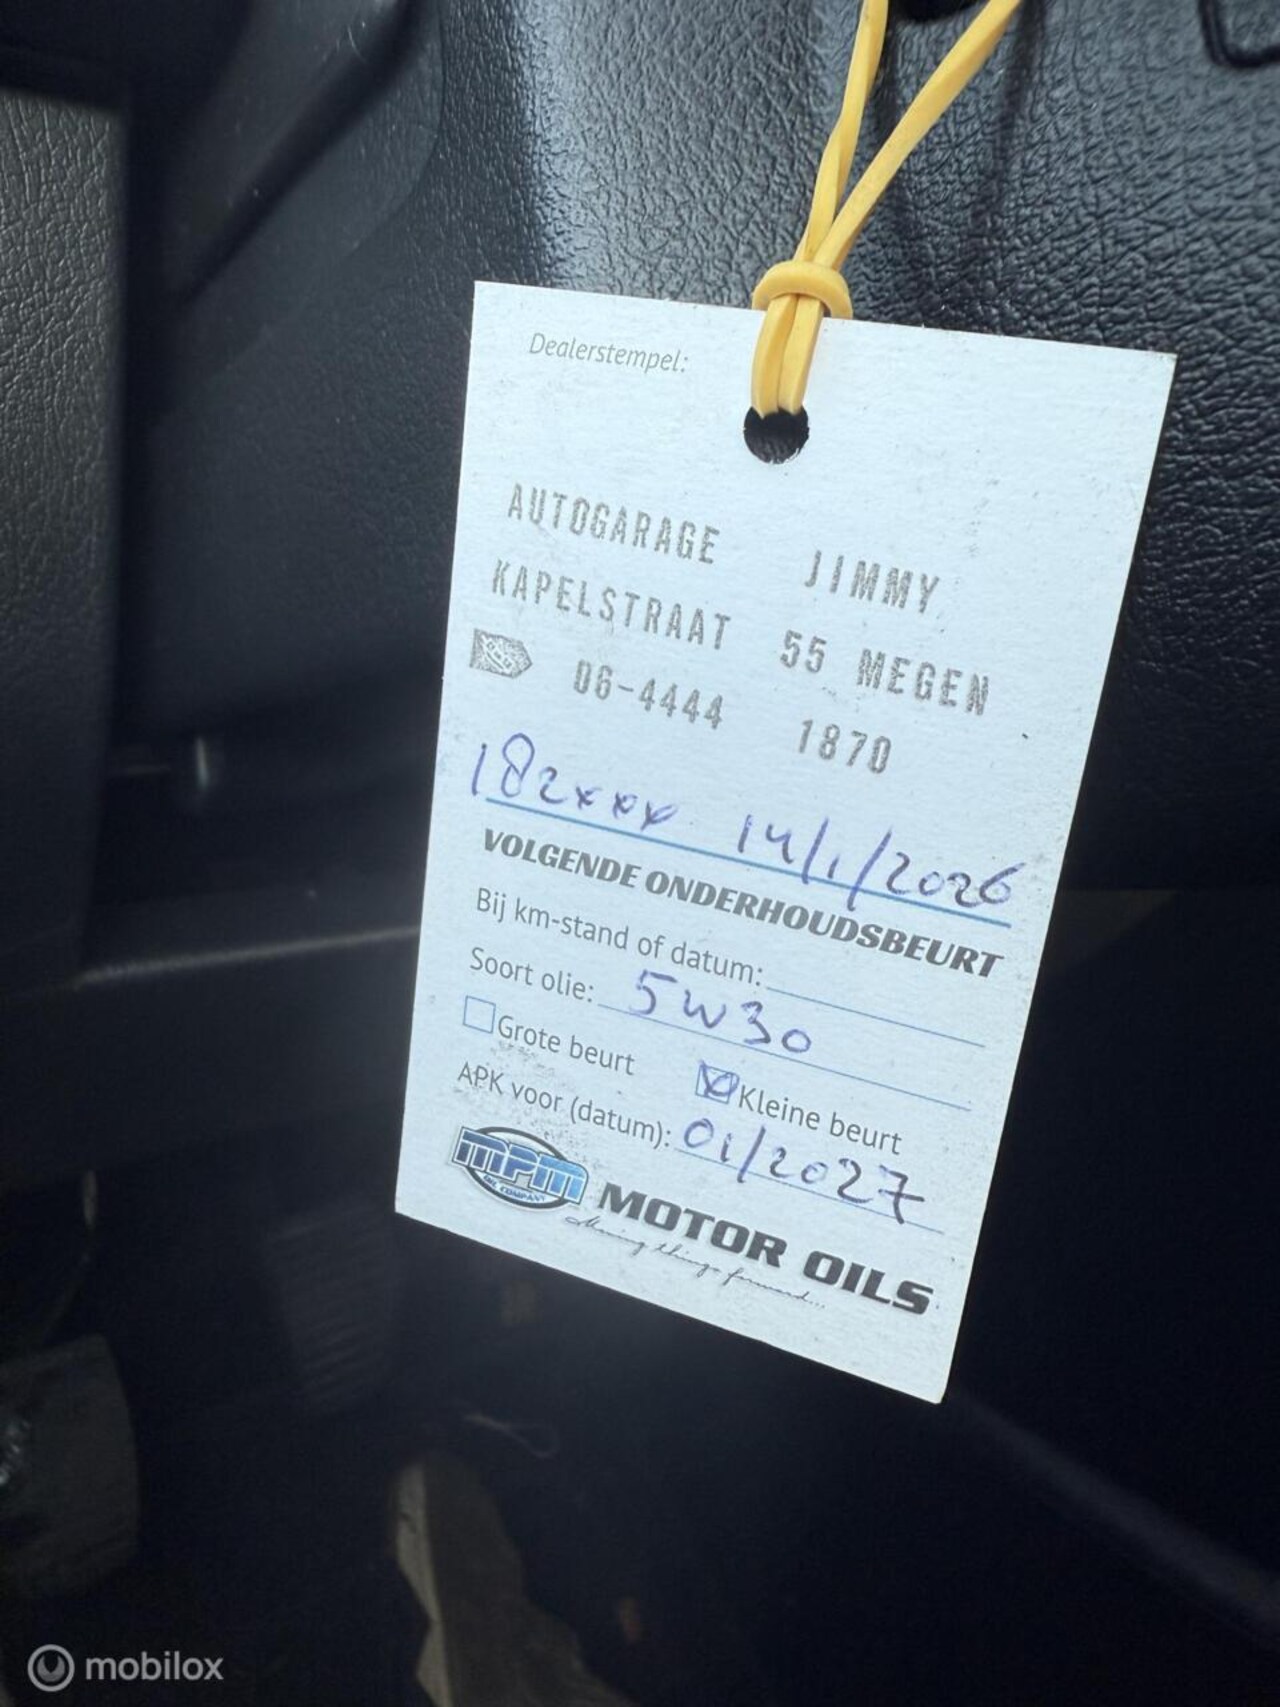 Dealerstempel:
AUTOGARAGE JIMMY
KAPELSTRAAT 55 MEGEN
06-4444 1870
182xxx 14/1/2026
VOLGENDE ONDERHOUDSBEURT
Bij km-stand of datum:
Soort olie: 5w30
Grote beurt Kleine beurt
APK voor (datum): 01/2027
MPM OIL COMPANY MOTOR OILS
Moving things forward...
mobilox